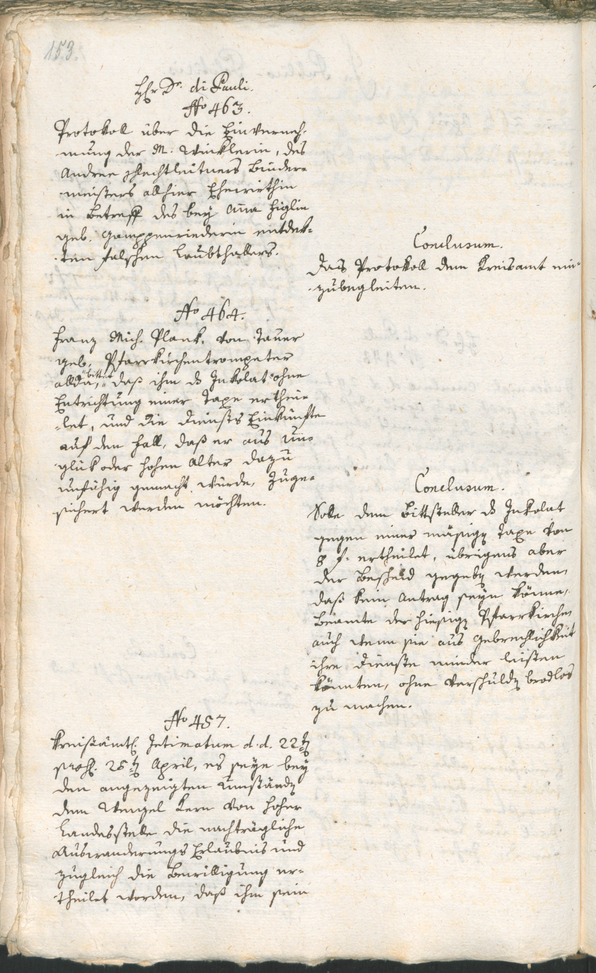 153.
H: Dr. di Pauli.
No 463.
Protokoll über die Einverneh-
mung der M: Winklerin, des
Andree Plechtleitners Binder-
meisters allhier Ehewirthin
in Betreff des bey Anna Figlin
geb. Gampenriederin entdek-
ten falschen Laubthallers.
Conclusum.
Das Protokoll dem Kreisamt ein-
zubegleiten.
No 464.
Franz Mich. Plank, von
geb. Pfarrkirchentrompeter
allda, bittet, daß ihm ds Inkolat ohne
Entrichtung einer Taxe erthei-
let, und die Diensts Einkünfte
auf den Fall, daß er aus Un-
glük oder hohen Alter dazu
unfähig gemacht würde, zuge-
sichert werden möchten.
Conclusum.
Seye dem Bittsteller ds Inkolat
gegen einer mäßigen Taxe von
8 f. ertheilet, übrigens aber
der Bescheid gegeben worden,
daß kein Antrag seyn könne,
Beamte der hiesigen Pfarrkirche
auch wenn sie aus Gebrechlichkeit
ihre Dienste minder leisten
könnten, ohne Verschulden brodlos
zu machen.
No 457.
Kreisämtl. Intimatum d. d. 22ten
praes. 25ten April, es seye bey
den angezeigten Umständen
dem Wenzel Kern von hoher
Landesstelle die nachträgliche
Auswanderungs Erlaubnis und
zugleich die Bewilligung er-
theilet worden, daß ihm sein